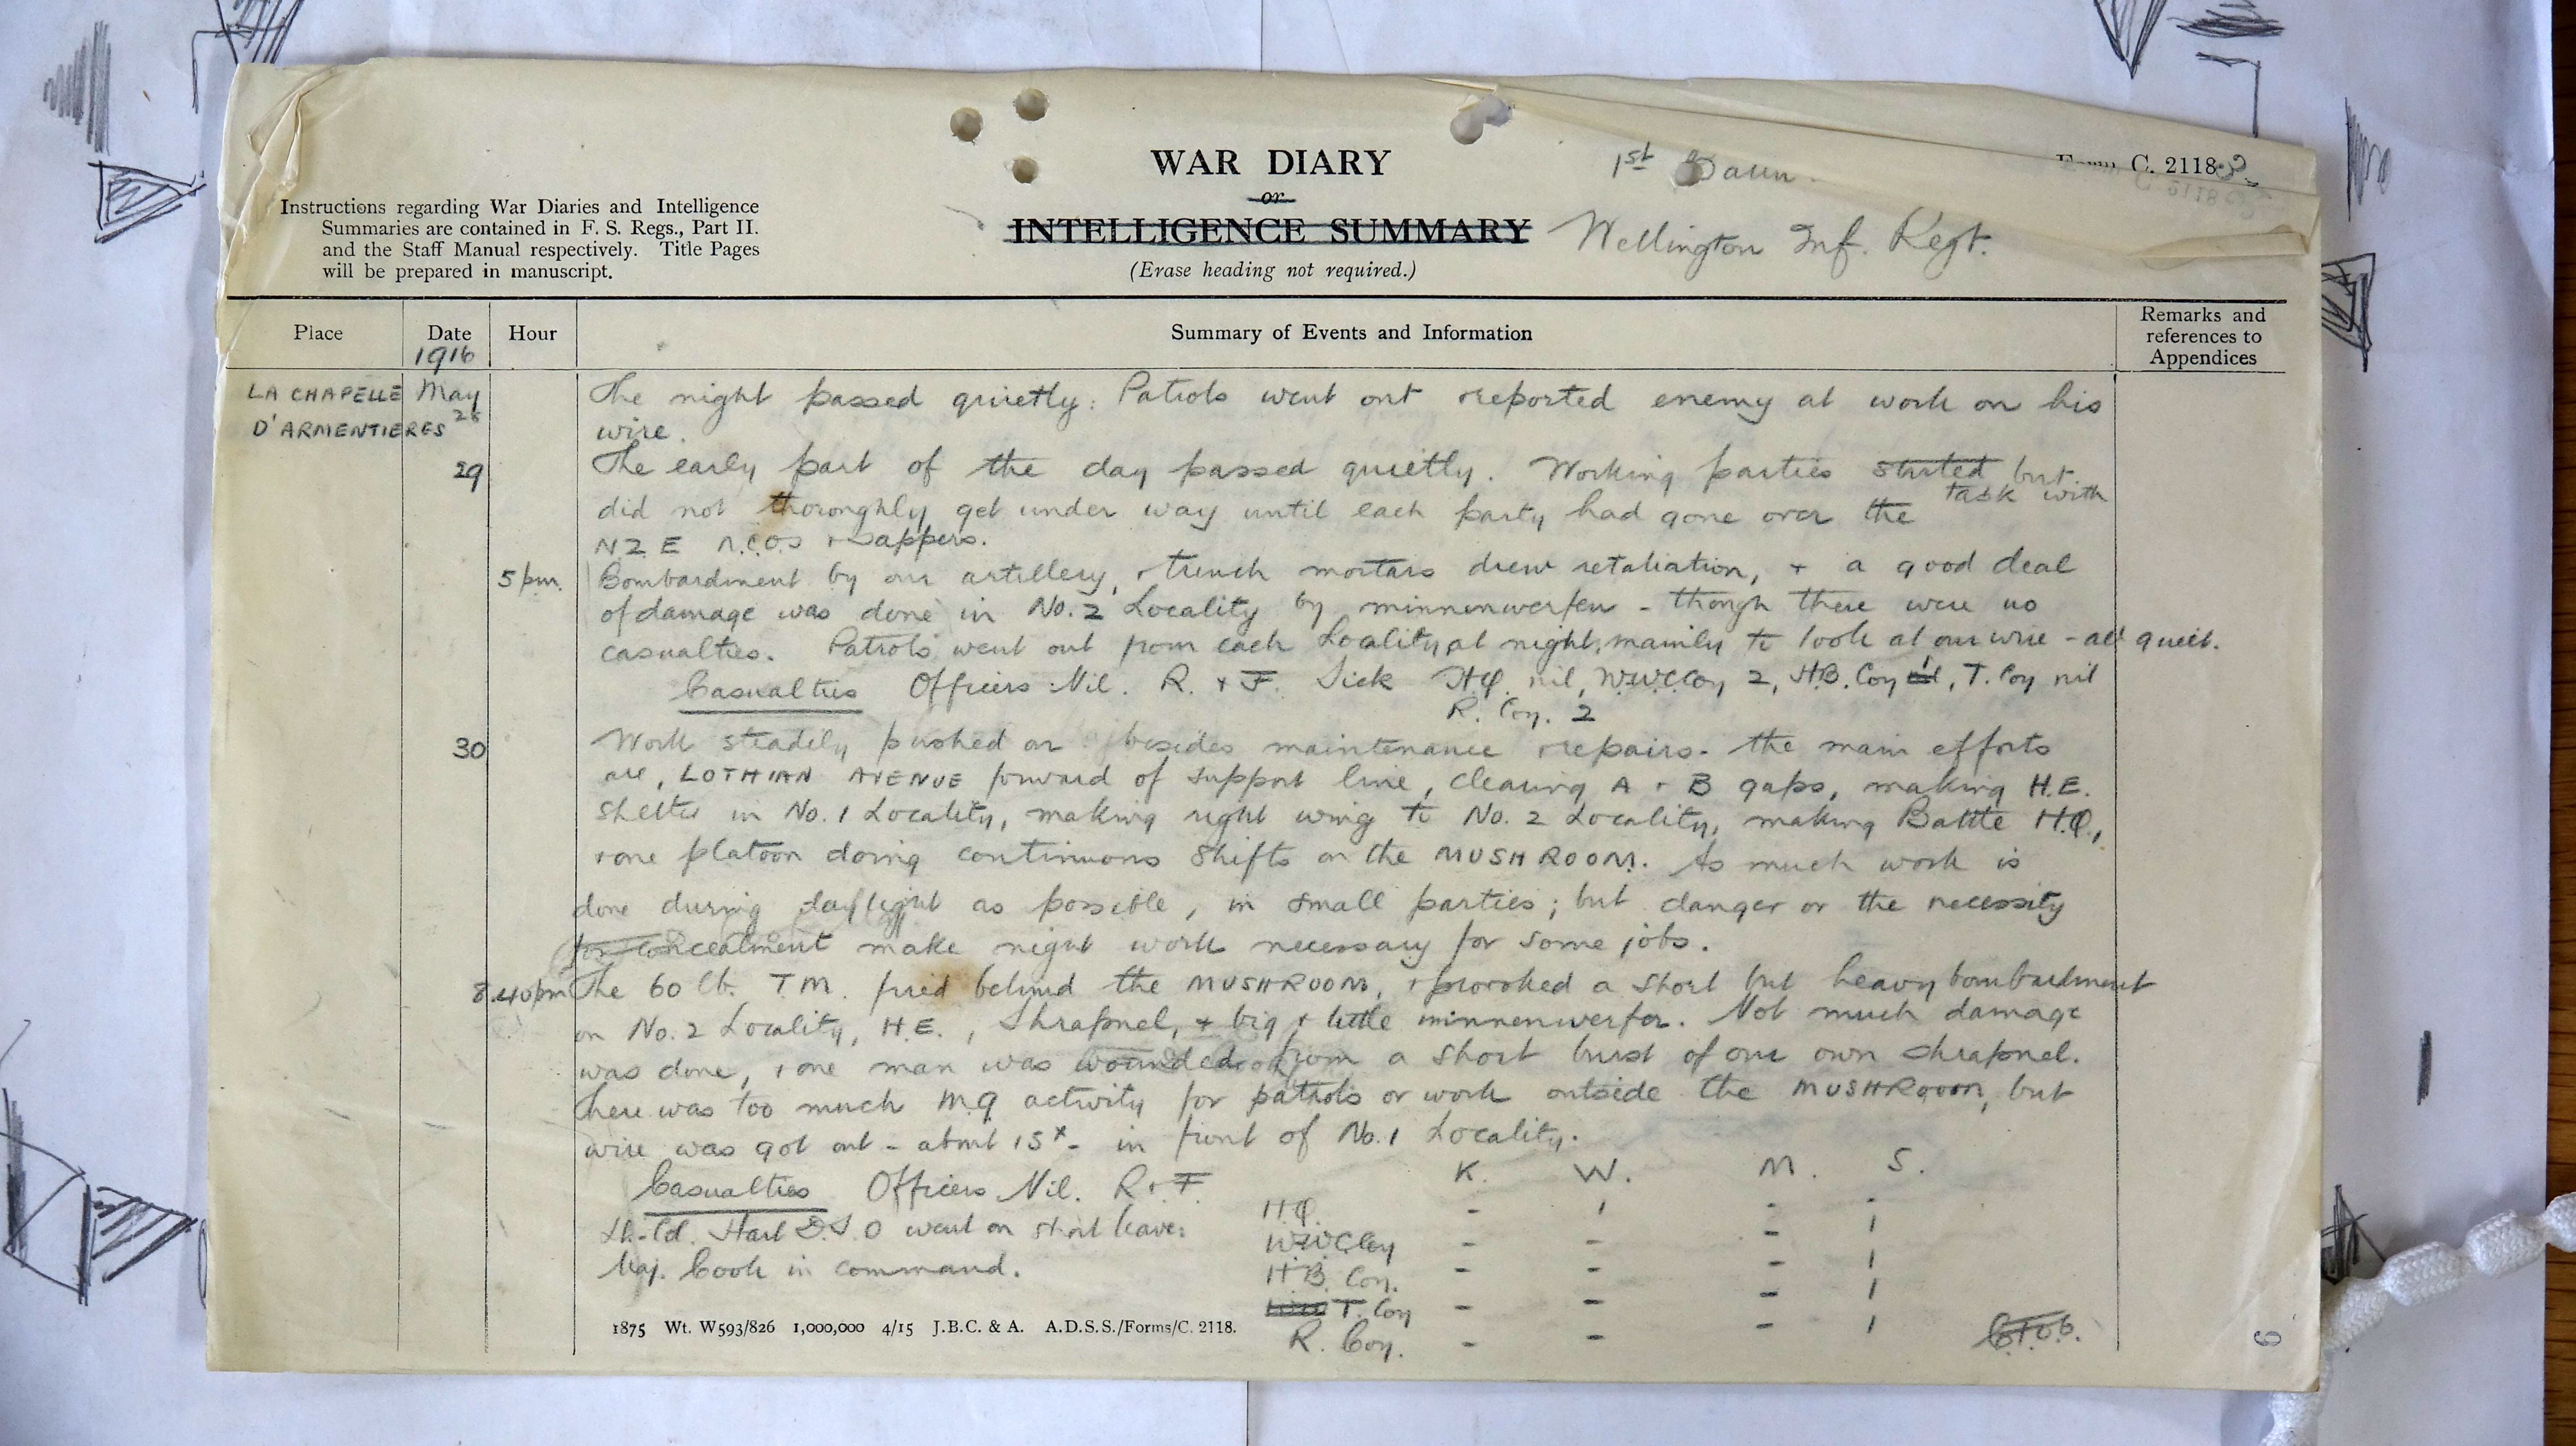 WAR DIARY
or
INTELLIGENCE SUMMARY
(Erase heading not required.)
Instructions regarding War Diaries and Intelligence
Summaries are contained in F. S. Regs., Part II.
and the Staff Manual respectively. Title Pages
will be prepared in manuscript.
1st Battn.
Wellington Inf. Regt.
Form C. 2118
Place
Date
1916
Hour
Summary of Events and Information
Remarks and
references to
Appendices
LA CHAPELLE
D'ARMENTIERES
May
28
The night passed quietly: Patrols went out & reported enemy at work on his
wire.
29
The early part of the day passed quietly. Working parties started but
did not thoroughly get under way until each party had gone over the task with
NZE N.C.Os & Sappers.
5 pm.
Bombardment by our artillery, & trench mortars drew retaliation, + a good deal
of damage was done in No. 2 Locality by minnenwerfer - though there were no
casualties. Patrols went out from each Locality at night, mainly to look at our wire - all quiet.
Casualties Officers Nil. R. + F. Sick H.Q. nil, W.W.C. Coy 2, H.B. Coy 1, T. Coy nil
R. Coy. 2
30
Work steadily pushed on besides maintenance & repairs. The main efforts
are, LOTHIAN AVENUE forward of support line, clearing A + B gaps, making H.E.
shelter in No. 1 Locality, making right wing to No. 2 Locality, making Battle H.Q.,
& one platoon doing continuous shifts on the MUSHROOM. As much work is
done during daylight as possible, in small parties; but danger or the necessity
for concealment make night work necessary for some jobs.
8.40pm
The 60 lb. T.M. fired behind the MUSHROOM, & provoked a short but heavy bombardment
on No. 2 Locality, H.E., Shrapnel, + big + little minnenwerfer. Not much damage
was done, & one man was wounded from a short burst of our own shrapnel.
There was too much M.G activity for patrols or work outside the MUSHROOM, but
wire was got out - about 15x - in front of No. 1 Locality.
Casualties Officers Nil. R + F.
K. W. M. S.
H.Q. - 1 - -
W.W.C. Coy - - - 1
H.B. Coy. - - - 1
T. Coy - - - 1
R. Coy. - - - 1
Lt.-Col. Hart D.S.O went on short leave:
Maj. Cook in command.
1875 Wt. W593/826 1,000,000 4/15 J.B.C. & A. A.D.S.S./Forms/C. 2118.